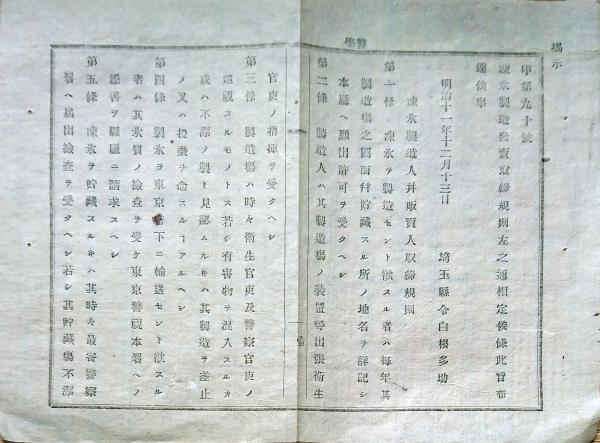 揭示
警學
甲第九十號
凍氷製造發賣取締規則左之通相定候條此旨布
達候事
明治十一年十二月十三日 埼玉縣令白根多助
凍氷製造人幷販賣人取締規則
第一條 凍氷ヲ製造セント欲スル者ハ每年其
製造場之圖面幷貯藏スル所ノ地名ヲ詳記シ
本廳ヘ願出許可ヲ受クヘシ
第二條 製造人ハ其製造場ノ裝置等出張衛生
官吏ノ指揮ヲ受クヘシ
第三條 製造場ハ時々衛生官吏及警察官吏ノ
巡視スルモノトス若シ有害物ヲ混入スルカ
或ハ不潔ノ製ト見認ムルキハ其製造ヲ差止
メ又ハ投棄ヲ命スルヿアルヘシ
第四條 製氷ヲ東京府下ニ輸送セント欲スル
者ハ其氷質ノ檢查ヲ受ケ東京警視本署ヘノ
添書ヲ縣廳ニ請求スヘシ
第五條 凍氷ヲ貯藏スルキハ其時々最寄警察
署ヘ屆出檢查ヲ受クヘシ若シ其貯藏場不潔